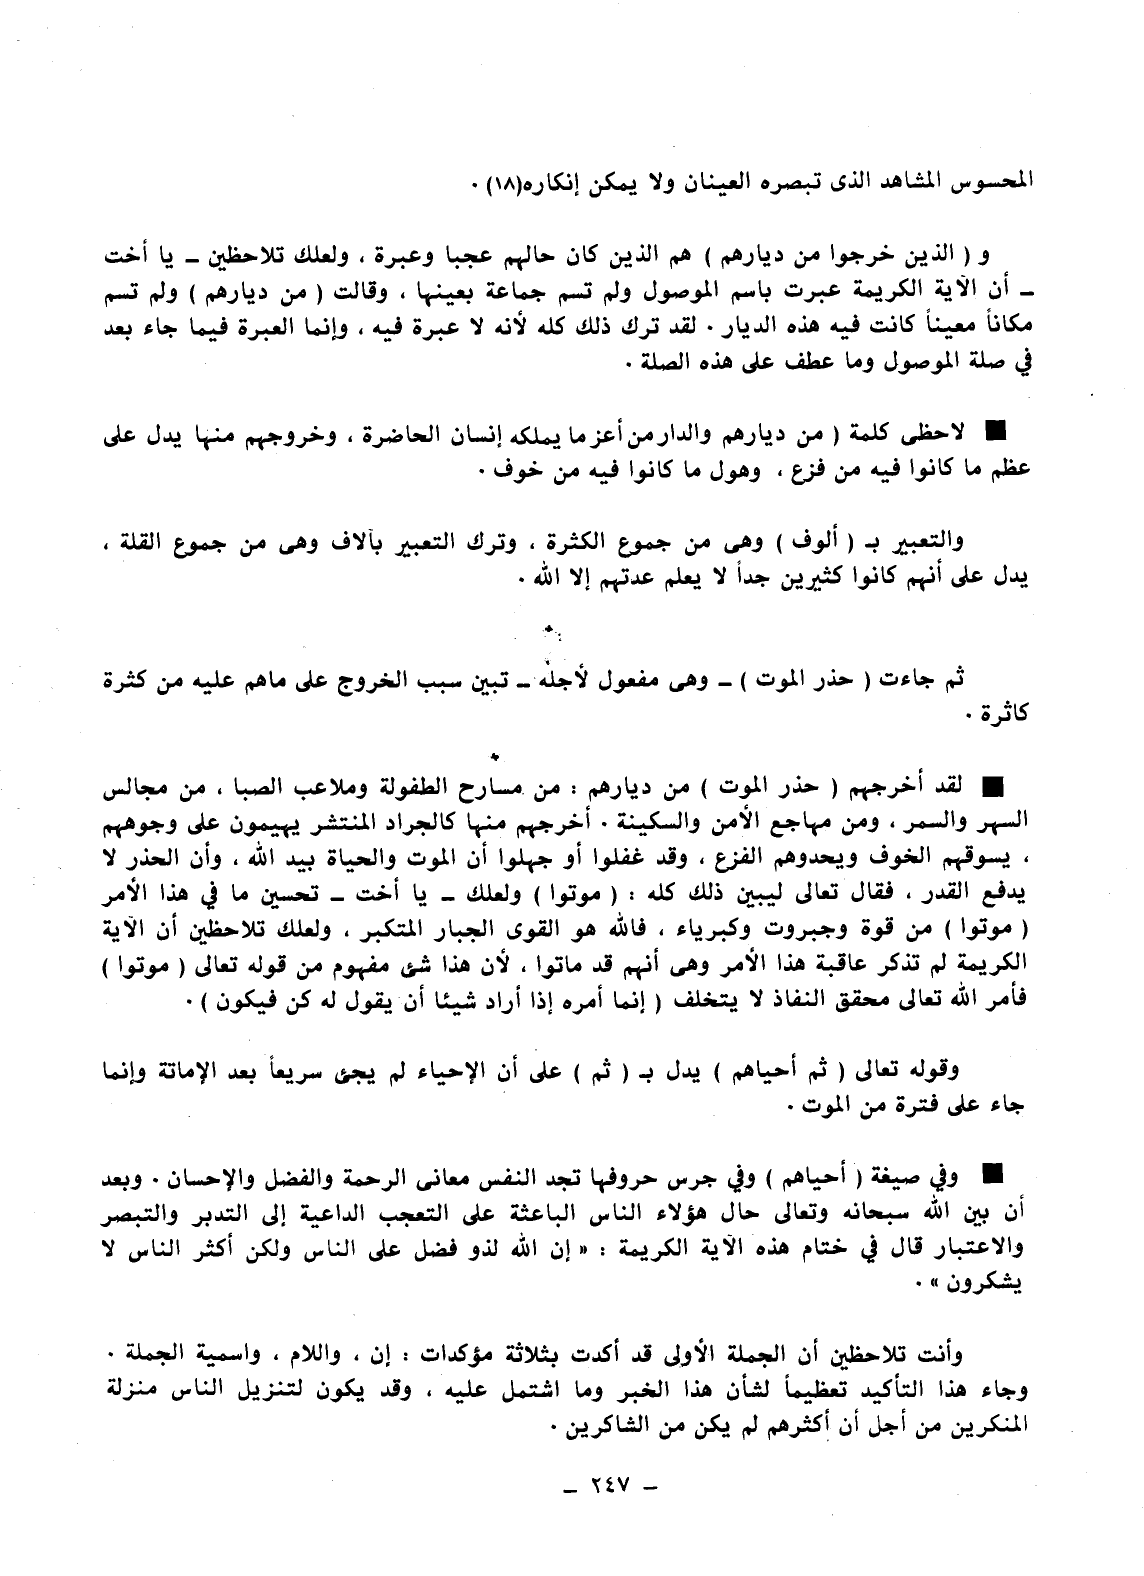 المحسوس المشاهد الذى تبصره العينان ولا يمكن إنكاره(١٨) ٠
و ( الذين خرجوا من ديارهم ) هم الذين كان حالهم عجبا وعبرة ، ولعلك تلاحظين ــ يا أخت
ــ أن الآية الكريمة عبرت باسم الموصول ولم تسم جماعة بعينها ، وقالت ( من ديارهم ) ولم تسم
مكاناً معيناً كانت فيه هذه الديار ٠ لقد ترك ذلك كله لأنه لا عبرة فيه ، وإنما العبرة فيما جاء بعد
في صلة الموصول وما عطف على هذه الصلة ٠
■ لاحظى كلمة ( من ديارهم والدار من أعز ما يملكه إنسان الحاضرة ، وخروجهم منها يدل على
عظم ما كانوا فيه من فزع ، وهول ما كانوا فيه من خوف ٠
والتعبير بـ ( ألوف ) وهى من جموع الكثرة ، وترك التعبير بآلاف وهى من جموع القلة ،
يدل على أنهم كانوا كثيرين جداً لا يعلم عدتهم إلا الله ٠
ثم جاءت ( حذر الموت ) ــ وهى مفعول لأجله ــ تبين سبب الخروج على ماهم عليه من كثرة
كاثرة ٠
■ لقد أخرجهم ( حذر الموت ) من ديارهم : من مسارح الطفولة وملاعب الصبا ، من مجالس
السهر والسمر ، ومن مهاجع الأمن والسكينة ٠ أخرجهم منها كالجراد المنتشر يهيمون على وجوههم
، يسوقهم الخوف ويحدوهم الفزع ، وقد غفلوا أو جهلوا أن الموت والحياة بيد الله ، وأن الحذر لا
يدفع القدر ، فقال تعالى ليبين ذلك كله : ( موتوا ) ولعلك ــ يا أخت ــ تحسين ما في هذا الأمر
( موتوا ) من قوة وجبروت وكبرياء ، فالله هو القوى الجبار المتكبر ، ولعلك تلاحظين أن الآية
الكريمة لم تذكر عاقبة هذا الأمر وهى أنهم قد ماتوا ، لأن هذا شئ مفهوم من قوله تعالى ( موتوا )
فأمر الله تعالى محقق النفاذ لا يتخلف ( إنما أمره إذا أراد شيئا أن يقول له كن فيكون ) ٠
وقوله تعالى ( ثم أحياهم ) يدل بـ ( ثم ) على أن الإحياء لم يجئ سريعاً بعد الإماتة وإنما
جاء على فترة من الموت ٠
■ وفي صيغة ( أحياهم ) وفي جرس حروفها تجد النفس معانى الرحمة والفضل والإحسان ٠ وبعد
أن بين الله سبحانه وتعالى حال هؤلاء الناس الباعثة على التعجب الداعية إلى التدبر والتبصر
والاعتبار قال في ختام هذه الآية الكريمة : « إن الله لذو فضل على الناس ولكن أكثر الناس لا
يشكرون » ٠
وأنت تلاحظين أن الجملة الأولى قد أكدت بثلاثة مؤكدات : إن ، واللام ، واسمية الجملة ٠
وجاء هذا التأكيد تعظيماً لشأن هذا الخبر وما اشتمل عليه ، وقد يكون لتنزيل الناس منزلة
المنكرين من أجل أن أكثرهم لم يكن من الشاكرين ٠
ــ ٢٤٧ ــ